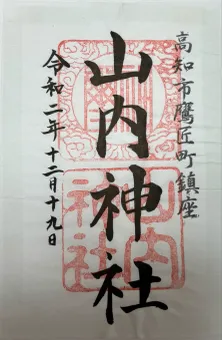 高知市鷹匠町鎮座
山内神社
令和二年十二月十九日
山内神社